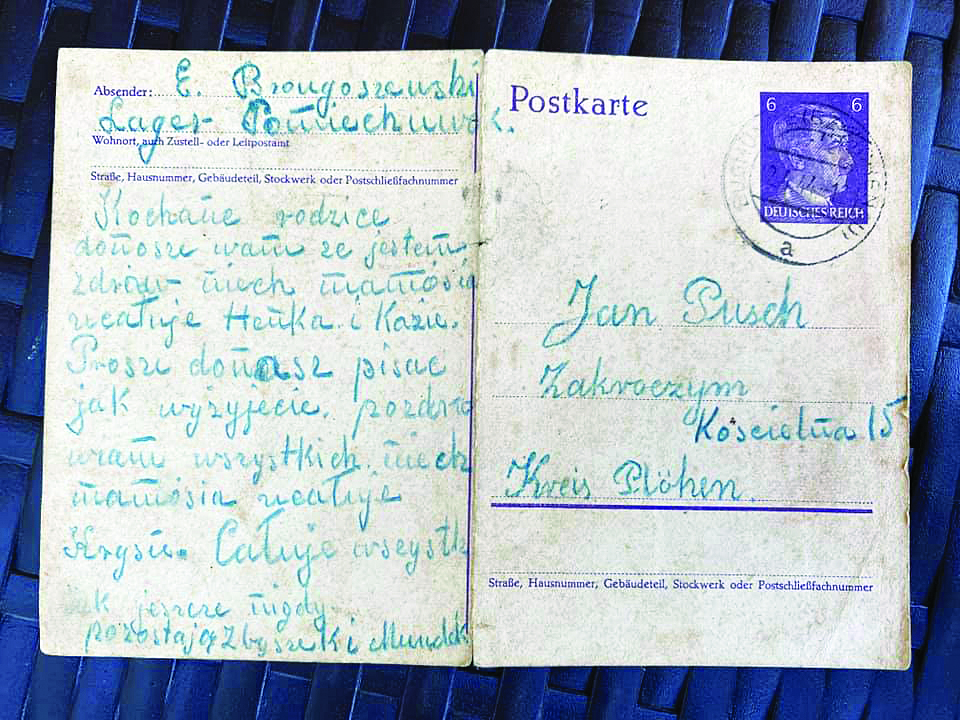 Absender: E. Brongoszewski
Lager Pomiechuwek.
Wohnort, auch Zustell- oder Leitpostamt
Straße, Hausnummer, Gebäudeteil, Stockwerk oder Postschließfachnummer
Kochane rodzice
donosze wam ze jestem
zdrów niech mamósia
ucałuje Heńka i Kazie.
Prosze do nasz pisac
jak wyżyjecie. pozdro
wram wszystkich. niech
mamósia ucałuje
Krysie. Całuje wszystk
jeszcze nigdy
pozostają Zbyszek i Mundek
Postkarte
6 6
DEUTSCHES REICH
a
Jan Pusch
Zakroczym
Koscielna 15
Kreis Plöhen.
Straße, Hausnummer, Gebäudeteil, Stockwerk oder Postschließfachnummer